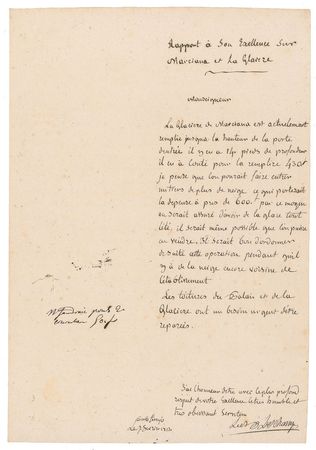 Rapport à Son Excellence Sur
Marciana et La Glaciere
Monseigneur
La Glaciere de Marciana est actuellement
remplie jusqua la hauteur de la porte
dentrée il y en a 14 pieds de profondeur
il en à couté pour la remplire 430
je pense que lon pourait faire entrer
un tiers de plus de neige, ce qui porterait
la depense à près de 600. par ce moyen
on serait assuré d'avoir de la glace tout
lété, il serait même possible que lon puisse
en vendre. Il serait bon dordonner
desuite cette operation pendant quil
y à de la neige encore voisine de
létablissement
Les toitures du Palais et de la
Glaciere ont un besoin urgent dêtre
reparées.
J'ai l'honneur dêtre avec le plus profond
respect de votre Excellence le tres humble et
tres obeissant Serviteur